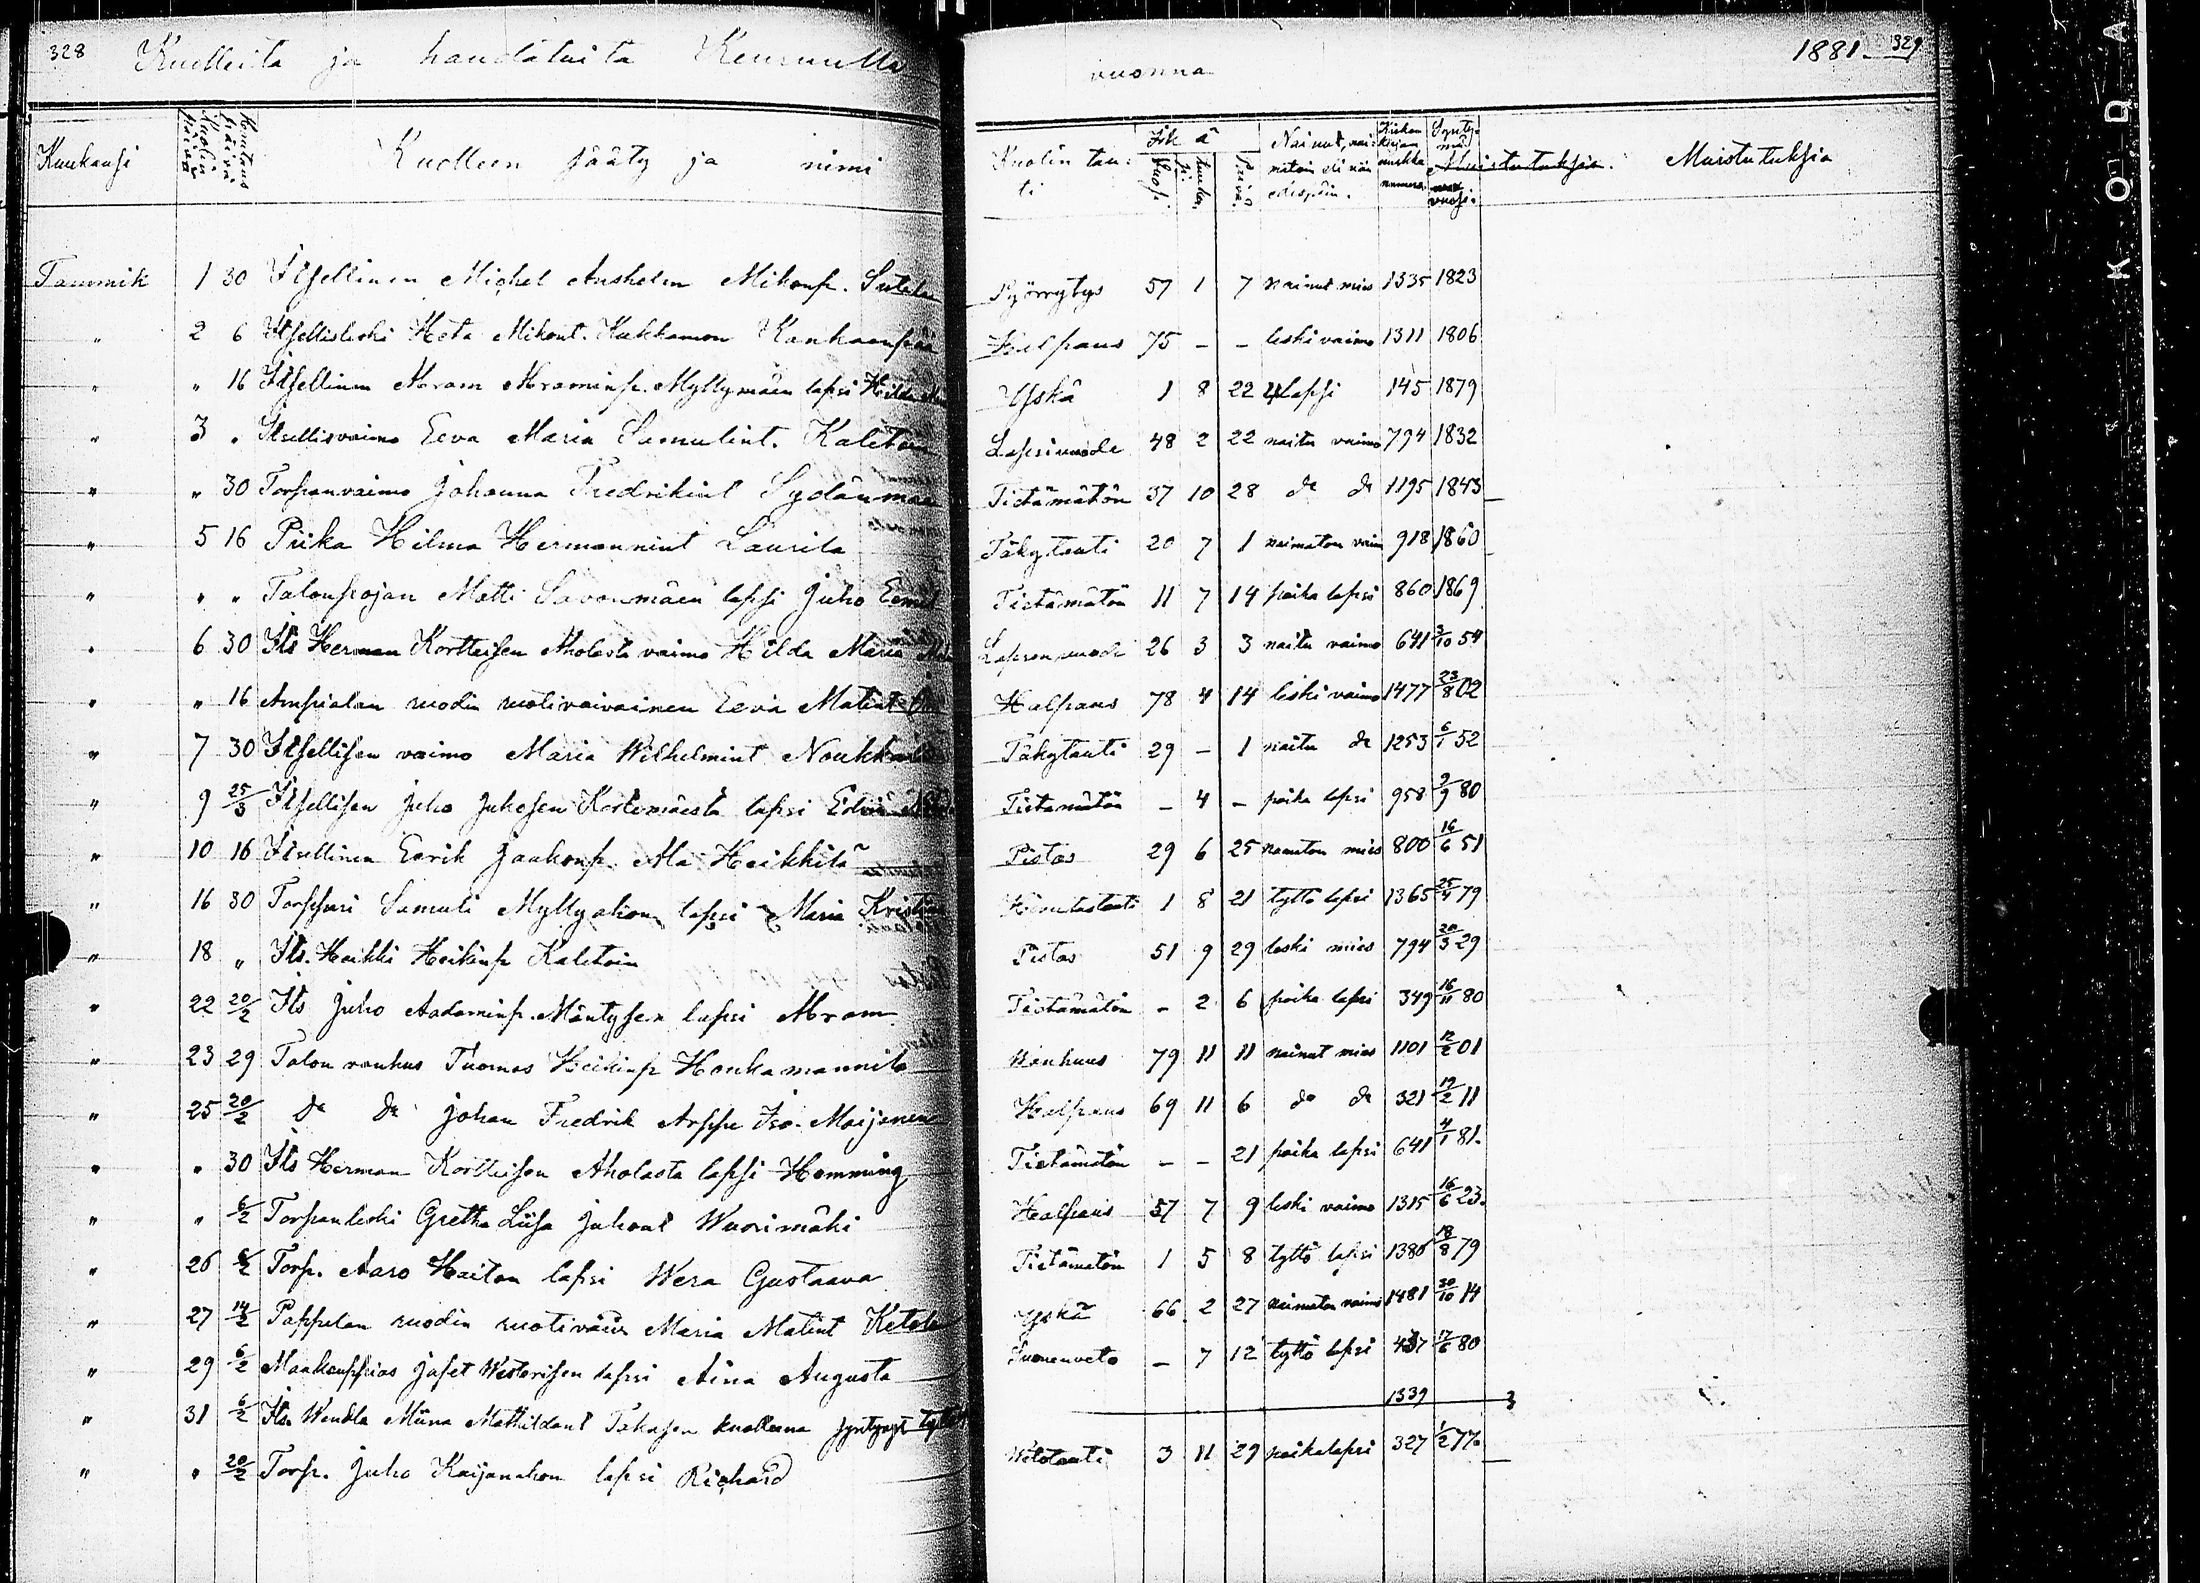 328 Kuolleita ja haudatuita Keuruulla vuonna 1881. 329
Kuukausi Kuolin päivä Hautaus päivä Kuolleen sääty ja nimi Kuolin tau- ti Ikä Vuosi. Kuuka. Päivä. Nainut, nai- matoin eli Kirkon kirjan numero. Synty- mä vuosi. Muistutuksia
Tammik 1 30 Itsellinen Michel Anshelm Mikonp. 57 1 7 nainut mies 1335 1823
" 2 6 Itsellisleski Heta Mikont. Kukkamon Kankaanpää Halpaus 75 - - leski vaimo 1311 1806
" " 16 Itsellinen Abram Abraminp. Myllymäen lapsi Hilda Yskä 1 8 22 lapsi 145 1879
" 3 " Itsellisvaimo Eeva Maria Samulint. Kaleton Lapsivuode 48 2 22 naitu vaimo 794 1832
" " 30 Torpanvaimo Johanna Fredrikint Sydänmaa Tietämätön 37 10 28 do do 1195 1843
" 5 16 Piika Hilma Hermannint Laurila Täkytauti 20 7 1 naimaton vaim 918 1860
" " " Talonpojan Matti Savonmäen lapsi Juho Eemil Tietämätön 11 7 14 poika lapsi 860 1869
" 6 30 Its Herman Kortteisen Aholasta vaimo Hilda Maria Lapsen vuode 26 3 3 naitu vaimo 641 3/10 54
" " 16 Ampialan ruodin ruotivaivainen Eeva Matint Halpaus 78 4 14 leski vaimo 1477 23/8 02
" 7 30 Itsellisen vaimo Maria Wilhelmint Täkytauti 29 - 1 naitu do 1253 6/1 52
" 9 25/3 Itsellisen Juho Juhosen Kortemäestä lapsi Tietämätön - 4 - poika lapsi 958 9/9 80
" 10 16 Itsellinen Eerik Jaakonp. Ala Heikkilä Pistos 29 6 25 naimaton mies 800 16/6 51
" 16 30 Torppari Samuli Myllyahon lapsi Maria Kristiina 1 8 21 tyttö lapsi 1365 25/4 79
" 18 " Its. Heikki Heikinp Kaletoin Pistos 51 9 29 leski mies 794 20/3 29
" 22 20/2 Its Juho Aadaminp. Mäntysen lapsi Abram Tietämätön - 2 6 poika lapsi 349 16/11 80
" 23 29 Talon vanhus Tuomas Heikinp Honkamannila Wanhuus 79 11 11 nainut mies 1101 12/2 01
" 25 20/2 do do Johan Fredrik Arppe Iso. Halpaus 69 11 6 do do 321 19/2 11
" " 30 Its Herman Kortteisen Aholasta lapsi Hemming Tietämätön - - 21 poika lapsi 641 4/1 81.
" " 6/2 Torpanleski Gretha Liisa Juhont Wuorimäki Halpaus 57 7 9 leski vaimo 1315 16/6 23.
" 26 6/2 Torp. Aaro Haiton lapsi Wera Gustaava Tietämätön 1 5 8 tyttö lapsi 1386 18/8 79
" 27 14/2 Pappilan ruodin Maria Matint Ketola Yskä 66 2 27 naimaton vaimo 1481 30/10 14
" 29 6/2 Maakauppias Jafet Westerisen lapsi Aina Augusta Suonenveto - 7 12 tyttö lapsi 17/6 80
" 31 6/2 Its. Wendla Miina Mathildant kuolleena syntynyt 1339
" " 20/2 Torp. Juho Kaijanahon lapsi Richard 3 11 29 poikalapsi 327 1/2 77.
KODA